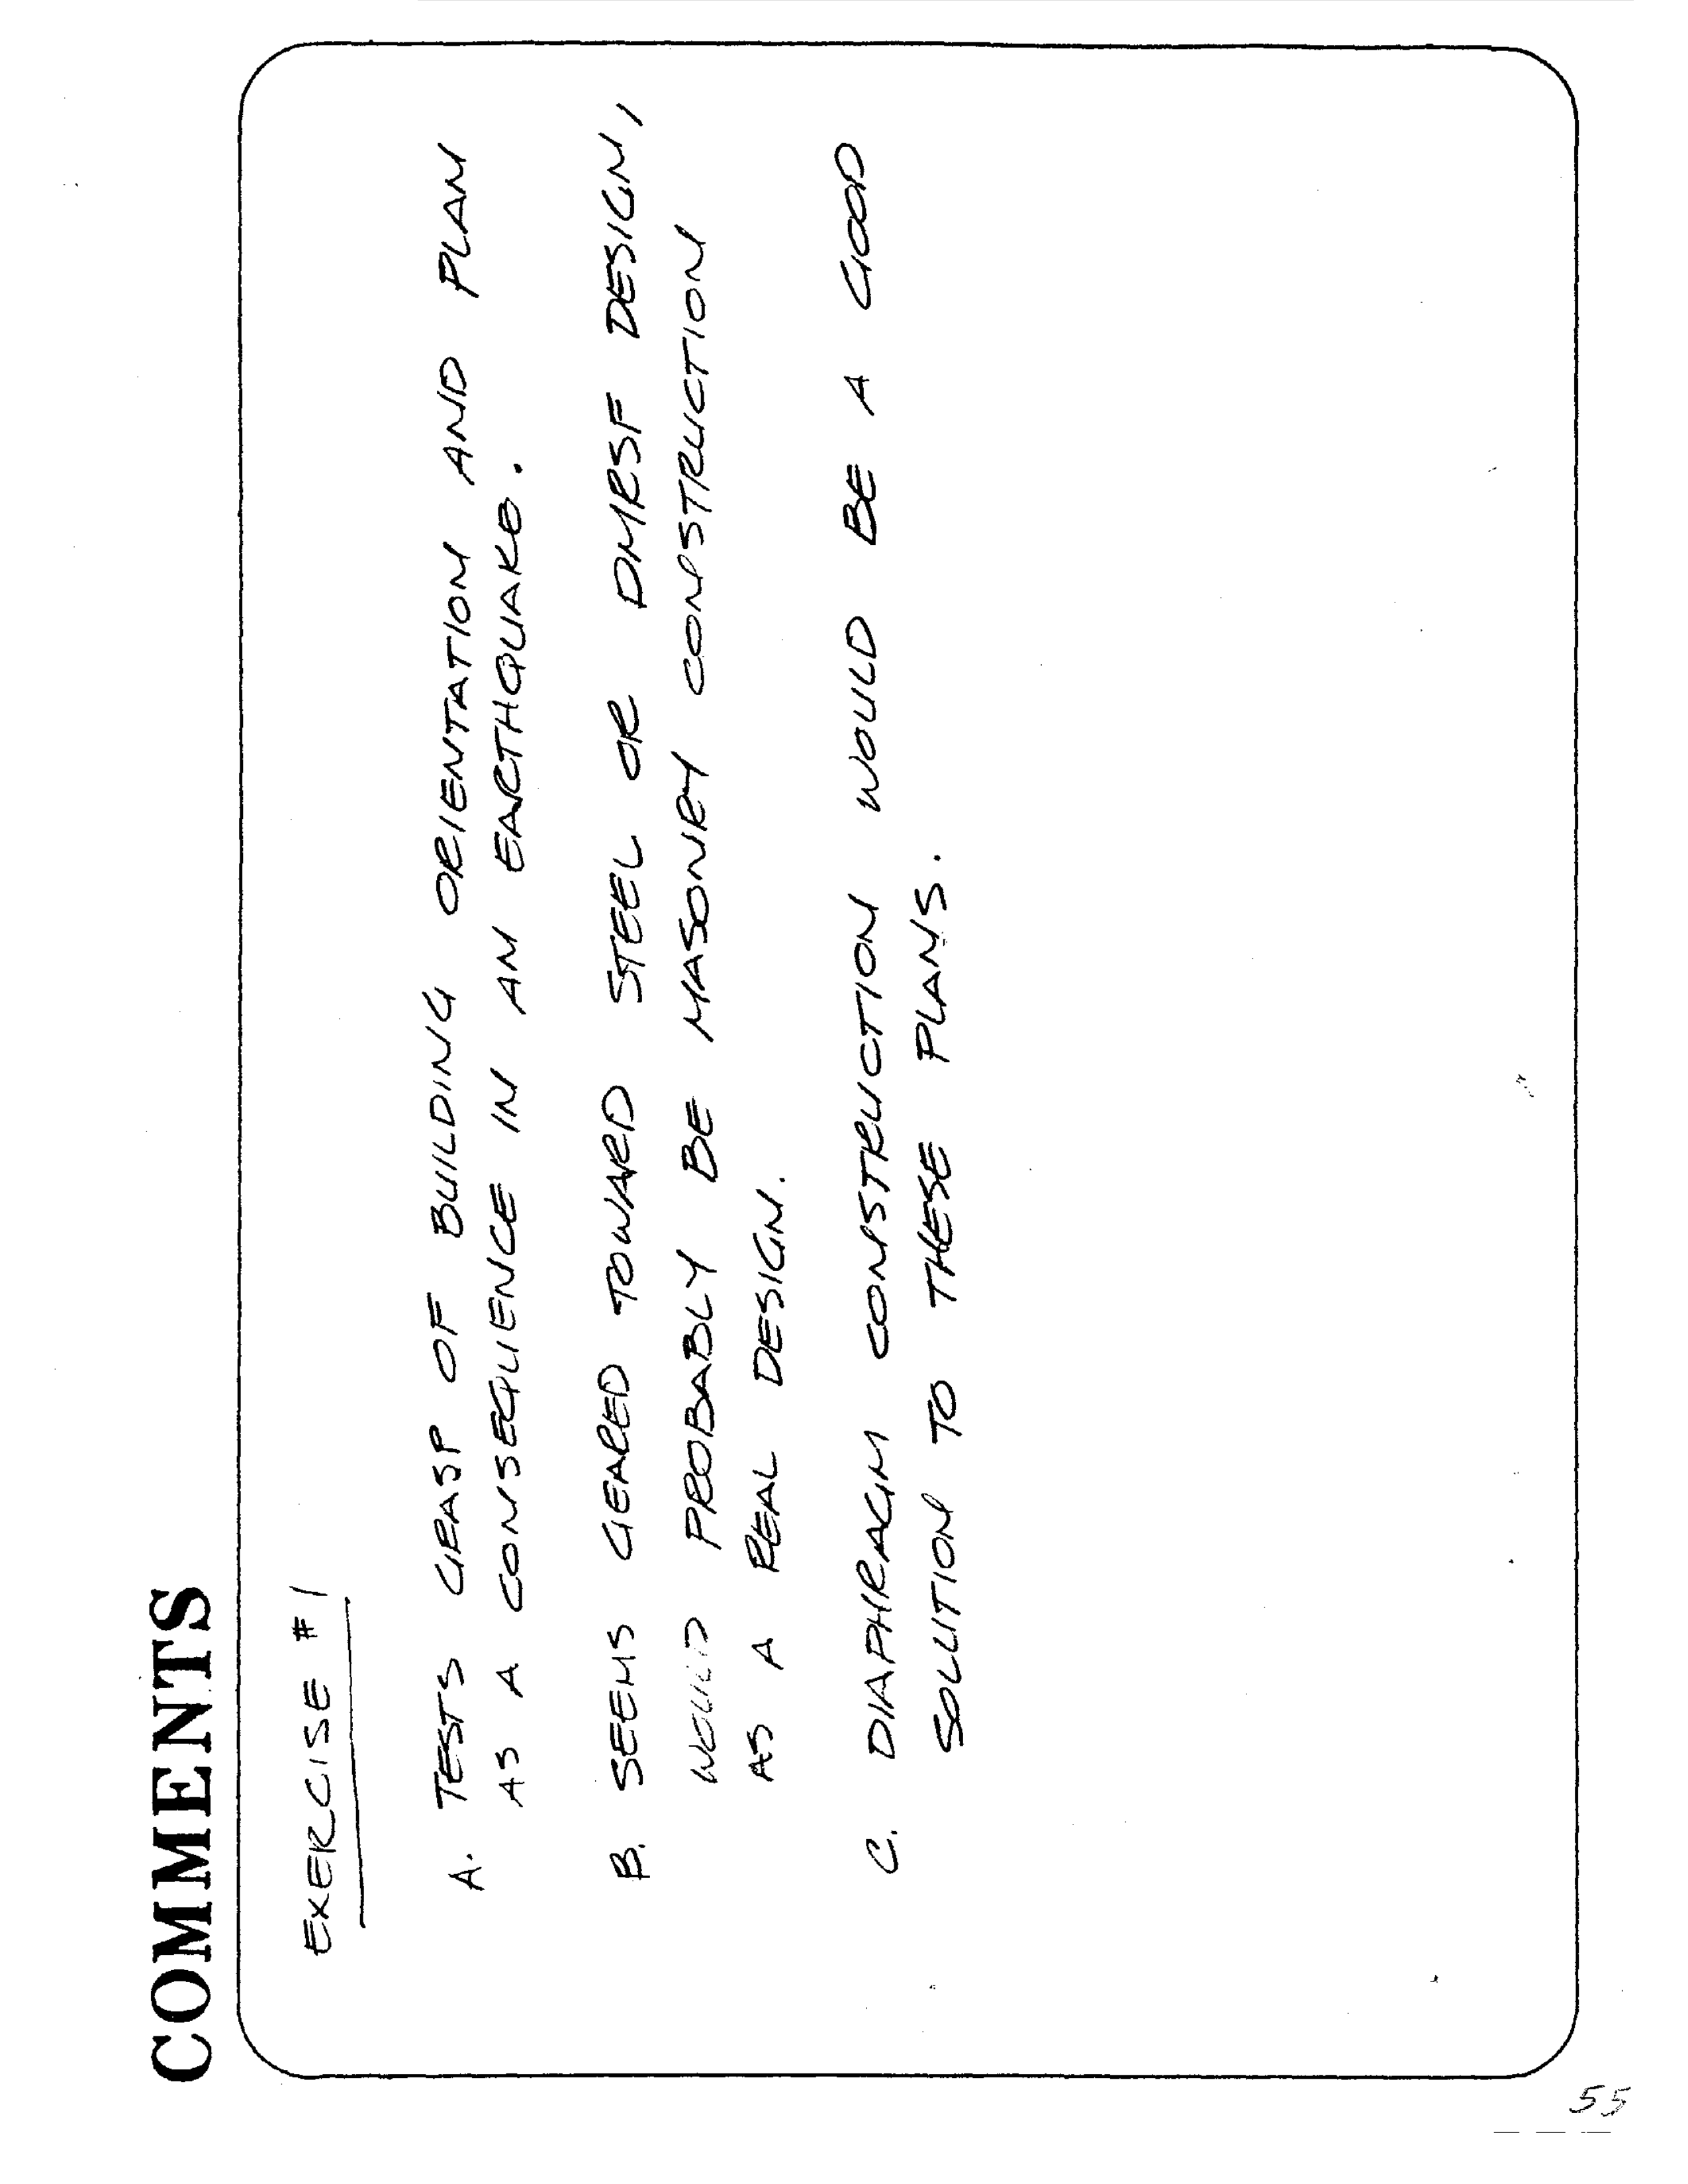 COMMENTS
EXERCISE #1
A. TESTS GRASP OF BUILDING ORIENTATION AND PLAN
AS A CONSEQUENCE IN AN EARTHQUAKE.
B. SEEMS GEARED TOWARD STEEL OR DMRSF DESIGN,
WOULD PROBABLY BE MASONRY CONSTRUCTION
AS A REAL DESIGN.
C. DIAPHRAGM CONSTRUCTION WOULD BE A GOOD
SOLUTION TO THESE PLANS.
55